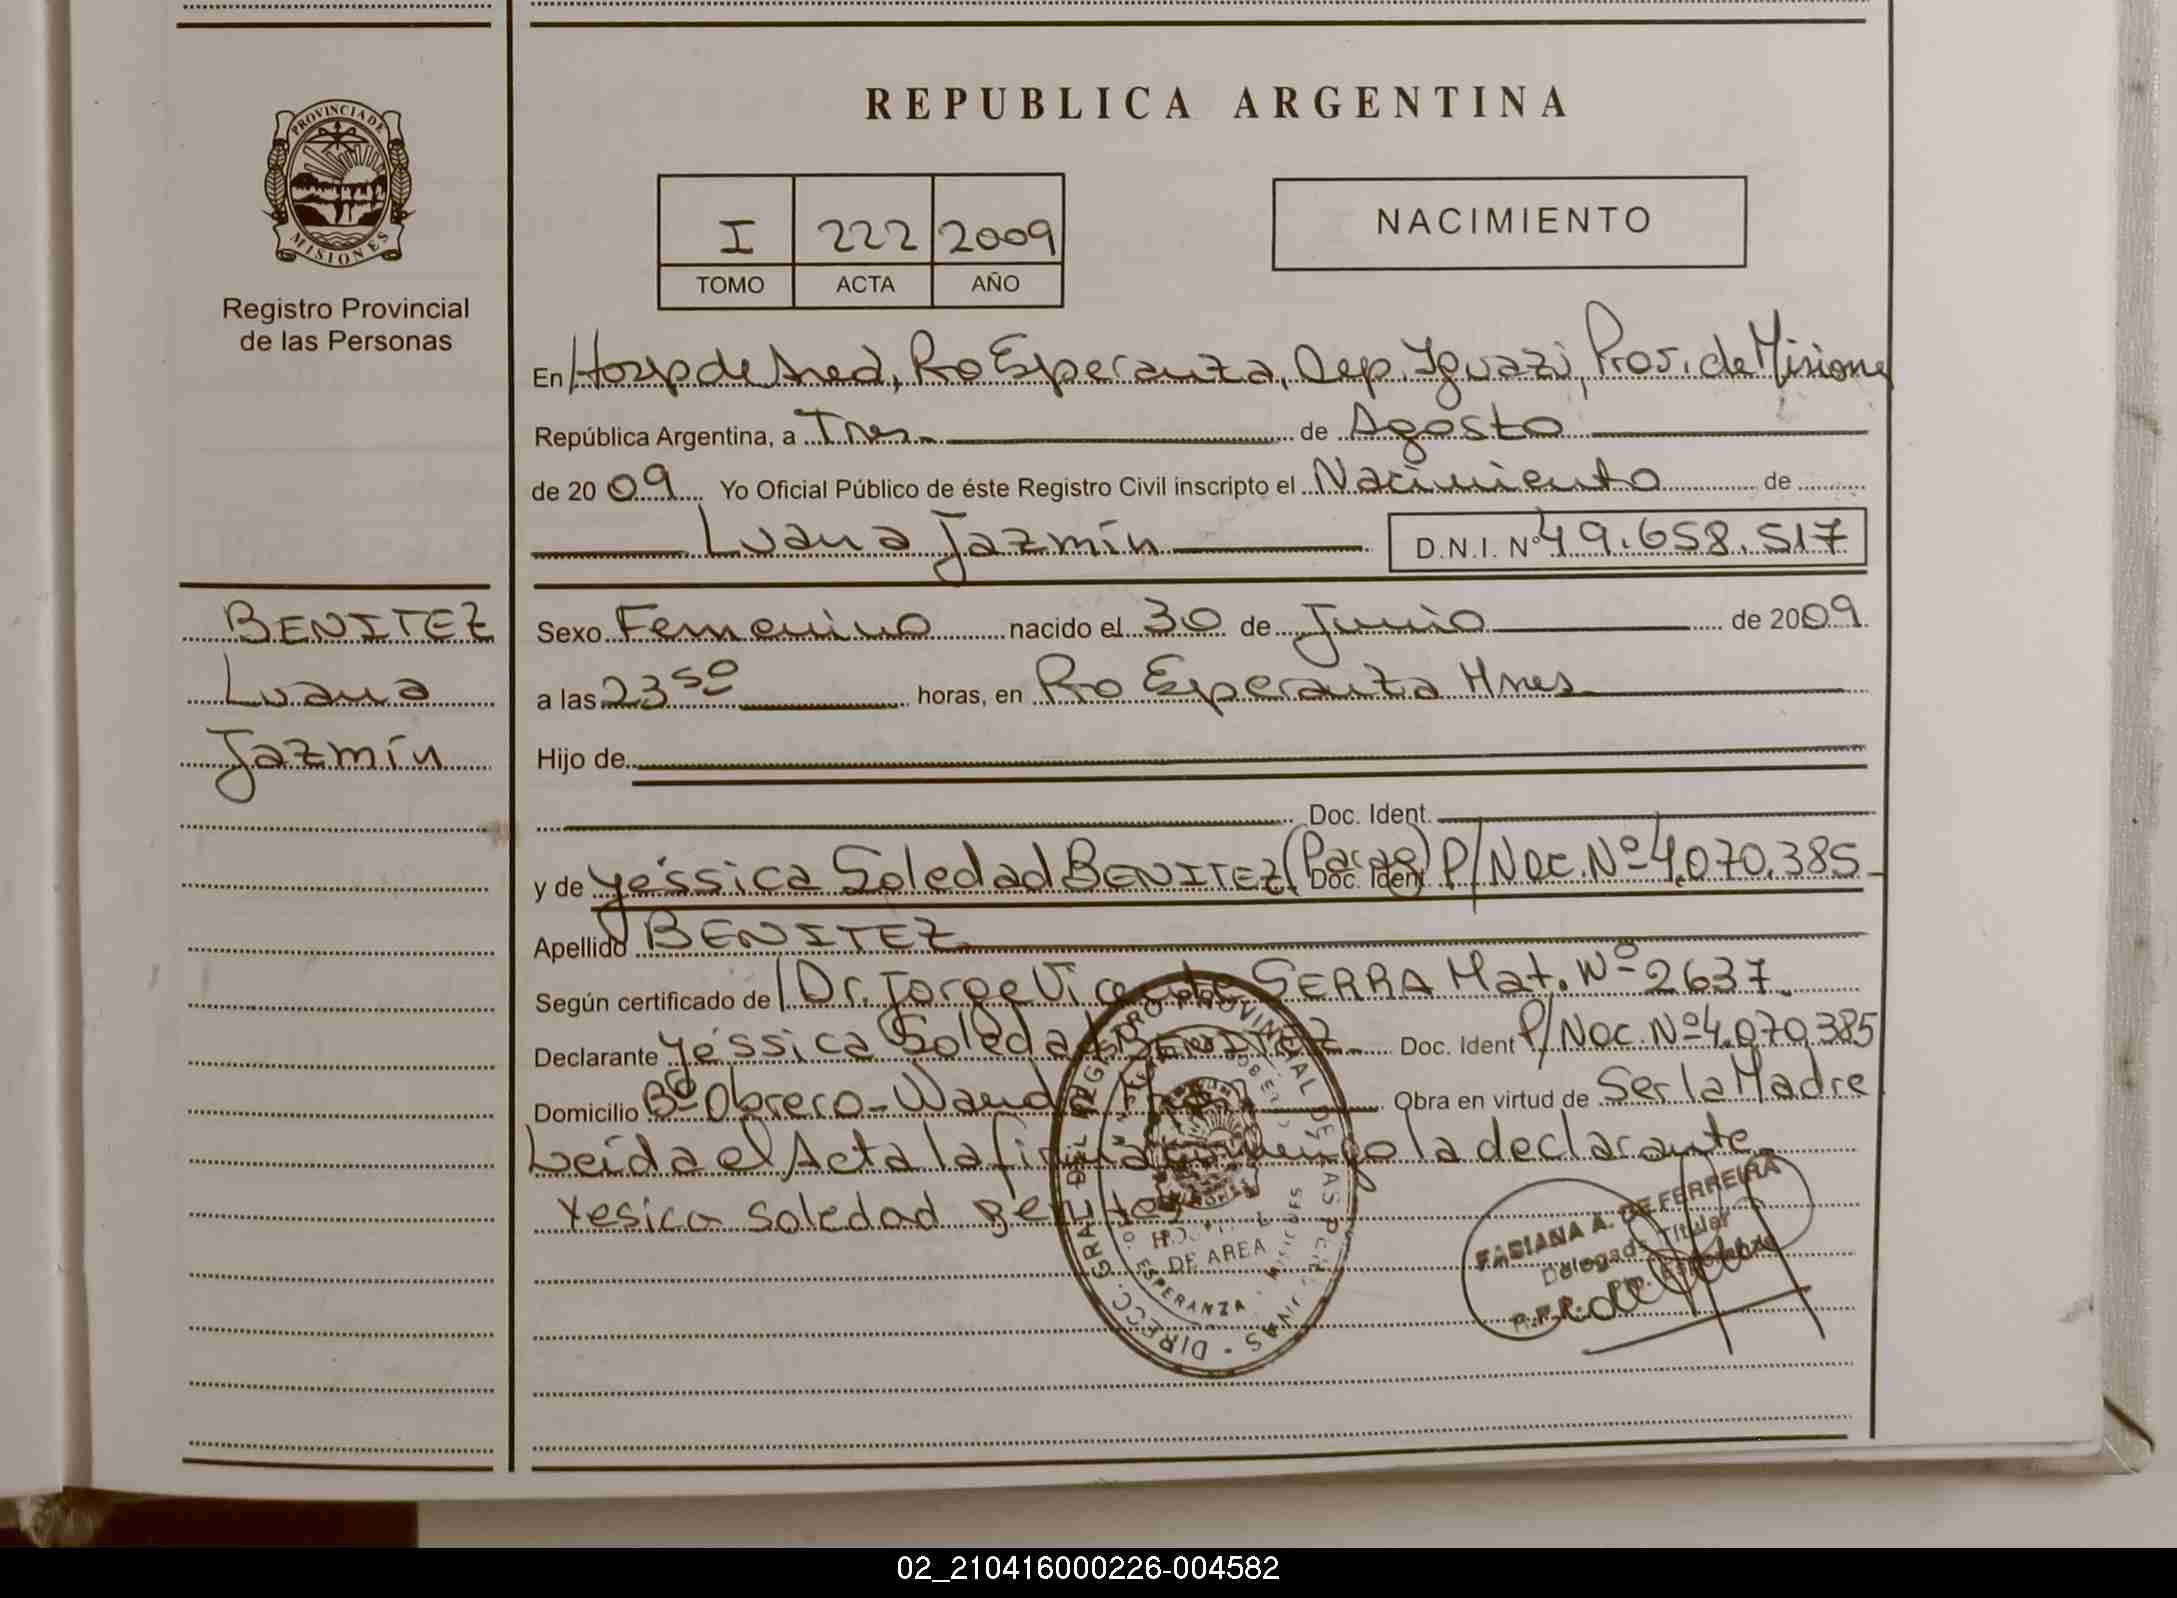 REPUBLICA ARGENTINA
PROVINCIA DE
MISIONES
Registro Provincial
de las Personas
I 222 2009
TOMO ACTA AÑO
NACIMIENTO
En Hosp de Area, Pto Esperanza, Dep. Iguazú, Prov. de Misiones
República Argentina, a Tres de Agosto
de 2009 Yo Oficial Público de éste Registro Civil inscripto el Nacimiento de
Luana Jazmín D.N.I. Nº 49.658.517
BENITEZ
Luana
Jazmín
Sexo Femenino nacido el 30 de Junio de 2009
a las 23 50 horas, en Pto Esperanza Mnes
Hijo de
Doc. Ident.
y de Yéssica Soledad BENITEZ (Parag) Doc. Ident P/Nac. Nº 4.070.385
Apellido BENITEZ
Según certificado de Dr. Jorge Vicente SERRA Mat. Nº 2637
Declarante Yéssica Soledad BENITEZ Doc. Ident P/Nac. Nº 4.070.385
Domicilio Bº Obrero - Wanda Mnes Obra en virtud de Ser la Madre
Leída el Acta la firma conmigo la declarante
Yesica Soledad Benitez
DIRECC. GRAL. DEL REGISTRO PROVINCIAL DE LAS PERSONAS
HOSPITAL
DE AREA
ESPERANZA - MISIONES
FABIANA A. DE FERREIRA
Delegada Titular
R.P.P. Pto. Esperanza
02_210416000226-004582